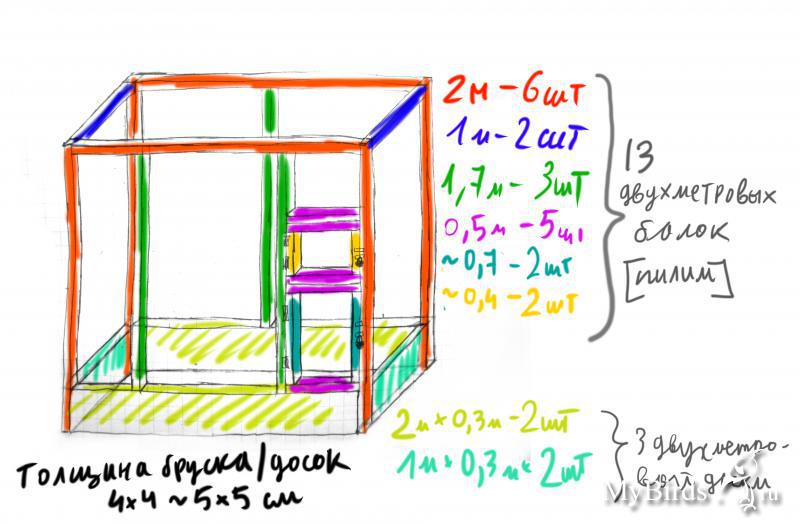 2м - 6шт
1м - 2шт
1,7м - 3шт
0,5м - 5ш
~0,7 - 2шт
~0,4 - 2шт
13
двухметровых
балок
[пилим]
2м × 0,3м - 2шт
1м × 0,3м × 2шт
3 двухметро-
вых
Толщина бруска/досок
4×4 ~ 5×5 см
MyBirds.ru